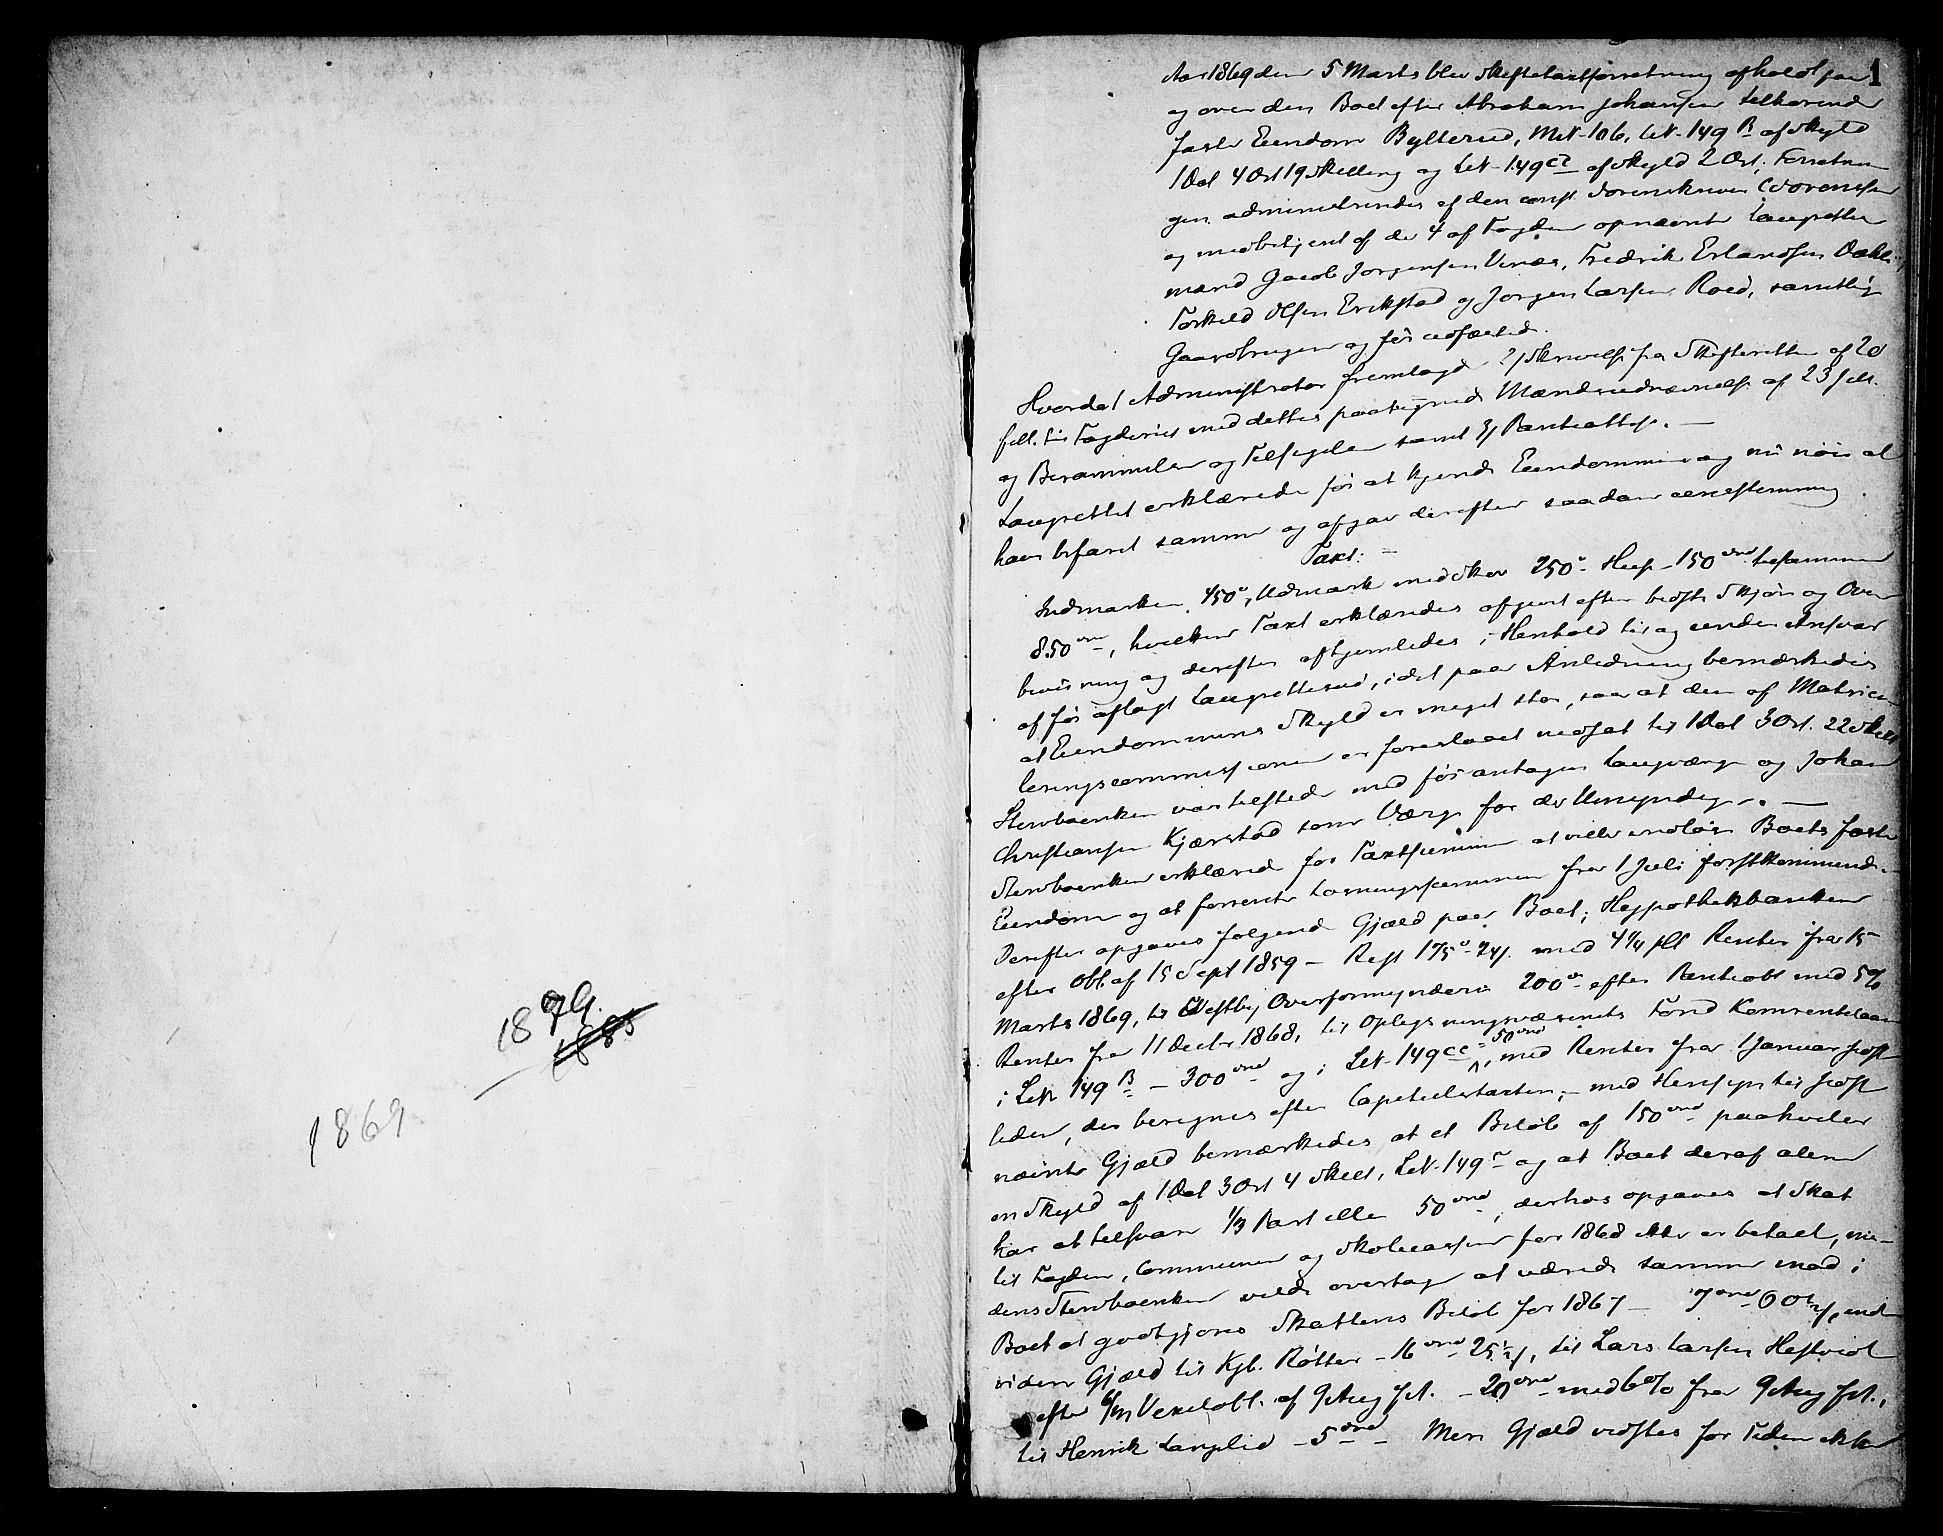 1879.
1885
1869
1
Aar 1869 den 5 Marts blev Skiftetaxtforretning afholdt paa
og over den Boet efter Abraham Johansen tilhørende
faste Eiendom Bylterud, Mt N 106, LN 149 B af Skyld
1 Dal 4 Ort 19 Skilling og LN 149 af Skyld 2 Ort. Forretnin
gen administreredes af den const Sorenskriver
og medbetjent af de 4 af Fogden opnævnte Laugrettes
mænd Jacob Jørgensen Vinæs, Fredrik Erlandsen
Torkild Olsen Erikstad og Jørgen Larsen Roed, samtlig
Gaardbruger og før edfæstet.
Hvorda Administrator fremlagde 2, Skrivelse fra Skifteretten af 20
febr. til Fogderiet med dettes paategnede Mændsudnævnelse af 23 febr.
og Berammelse og Tilsigelse samt 3, Panteattest. –
Laugrettet erklærede før at kjende Eiendommen og nu nøie at
have befaret samme og afgav derefter saadan eenstemmig
Taxt: –
Indmarken 450, Udmark med Skov 250 – Huse – 150 tilsammen
850, hvilken Taxt erklæredes afgivet efter bedste Skjøn og Over
beviisning og derefter afhjemledes i Henhold til og under Ansvar
af før aflagt Laugretteseed, idet paa Anledning bemærkedes
at Eiendommens Skyld er meget stor, saa at den af Matricu
leringscommissionen er foreslaaet nedsat til 1 Dal 3 Ort. 22 Skill
Stervboenken var tilstede med før antagen Laugværge og Johan
Christiansen Kjærstad som Værge for de Umyndige. –
Stervboenken erklærede for Taxtsummen at ville indløse Boets faste
Eiendom og at forrente Løsningssummen fra 1 Juli førstkommende
Derefter opgaves følgende Gjæld paa Boet; Hypothekbanken
efter Obl. af 15 Sept 1859 – Rest 175 – 24 med 4 1/4 pCt Renter fra 15
Marts 1869, til Vestby Overformynderi 200 efter Panteobl med 5%
Renter fra 11 Decbr 1868, til Oplysningsvæsenets Fond Kornrentelaan
i LN 149 B – 300 og i LN 149 50, med Renter fra 1 Januar sidst
leden, der beregnes efter Capitelstaxten; – med Hensyn til sidst
nævnte Gjæld bemærkedes at et Beløb af 150 paahviler
en Skyld af 1 Dal 3 Ort 4 Skill, LN 149 og at Boet deraf alene
har at tilsvare 1/3 Part eller 50, derhos opgaves at Skat
til Fogden, Commune og Skolecassen for 1868 ikke er betalt, me
dens Stervboenken vilde overtage at udrede samme mod i
Boet at godtgjøres Skattens Beløb for 1867 – 7 end
videre Gjæld til Kjb. Røtter – 16 25 1/2, til Lars Larsen Hestvedt
efter Vexelobl. af 9 Aug f.A. – 20 – med 6% fra 9 Aug f.A.,
til Henrik Langlie – 5 – Mere Gjæld vidstes for Tiden ikke